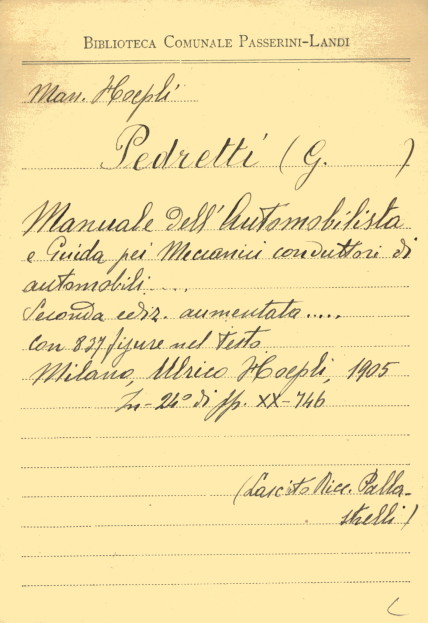 BIBLIOTECA COMUNALE PASSERINI-LANDI
Man. Hoepli
Pedretti (G. )
Manuale dell'Automobilista
e Guida pei Meccanici conduttori di
automobili....
Seconda ediz. aumentata.....
con 827 figure nel testo
Milano, Ulrico Hoepli, 1905
In-24° di pp. XX-746
(Lascito Ricc. Palla-
strelli)